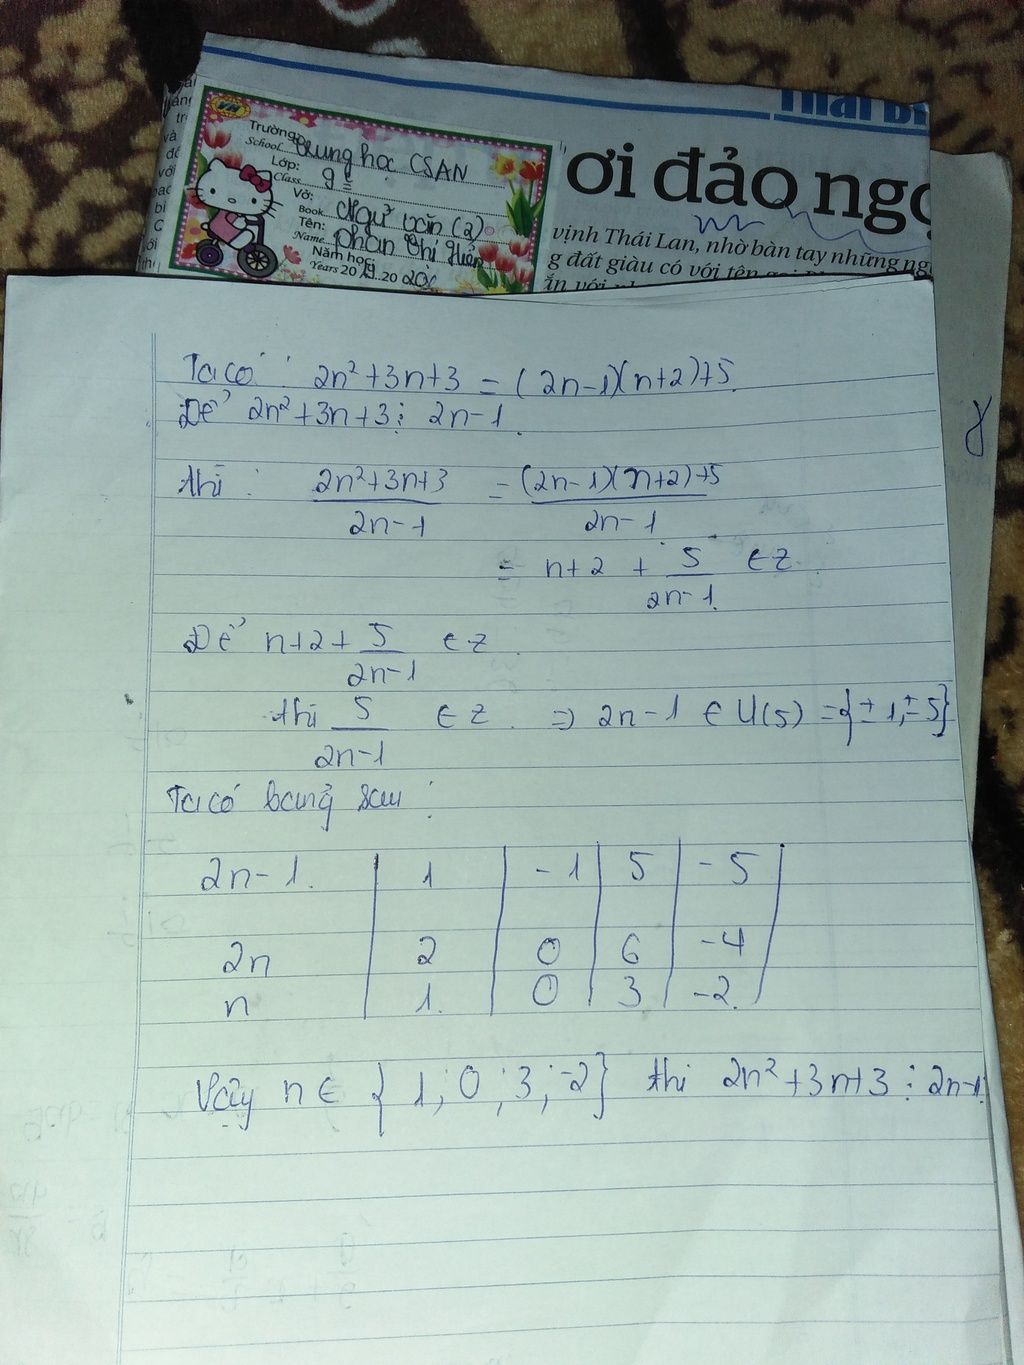 Thái B
Trường: Trung học CSAN
School
Lớp: 9
Class
Vở: Ngữ văn (2)
Book
Tên: Phan Thị
Name
Năm học:
Years 20 19...20 20
ơi đảo ngọ
vịnh Thái Lan, nhờ bàn tay những ng
g đất giàu có với tên gọi
ắn với
Ta có : 2n² + 3n + 3 = (2n-1)(n+2)+5
Để 2n² + 3n + 3 ⋮ 2n-1
thì : 2n²+3n+3 / 2n-1 = (2n-1)(n+2)+5 / 2n-1
= n+2 + 5/2n-1 ∈ Z
Để n+2+ 5/2n-1 ∈ Z
thì 5/2n-1 ∈ Z ⇒ 2n-1 ∈ Ư(5) = {±1, ±5}
Ta có bảng sau :
2n-1 | 1 | -1 | 5 | -5
2n | 2 | 0 | 6 | -4
n | 1 | 0 | 3 | -2
Vậy n ∈ {1; 0; 3; -2} thì 2n²+3n+3 ⋮ 2n-1